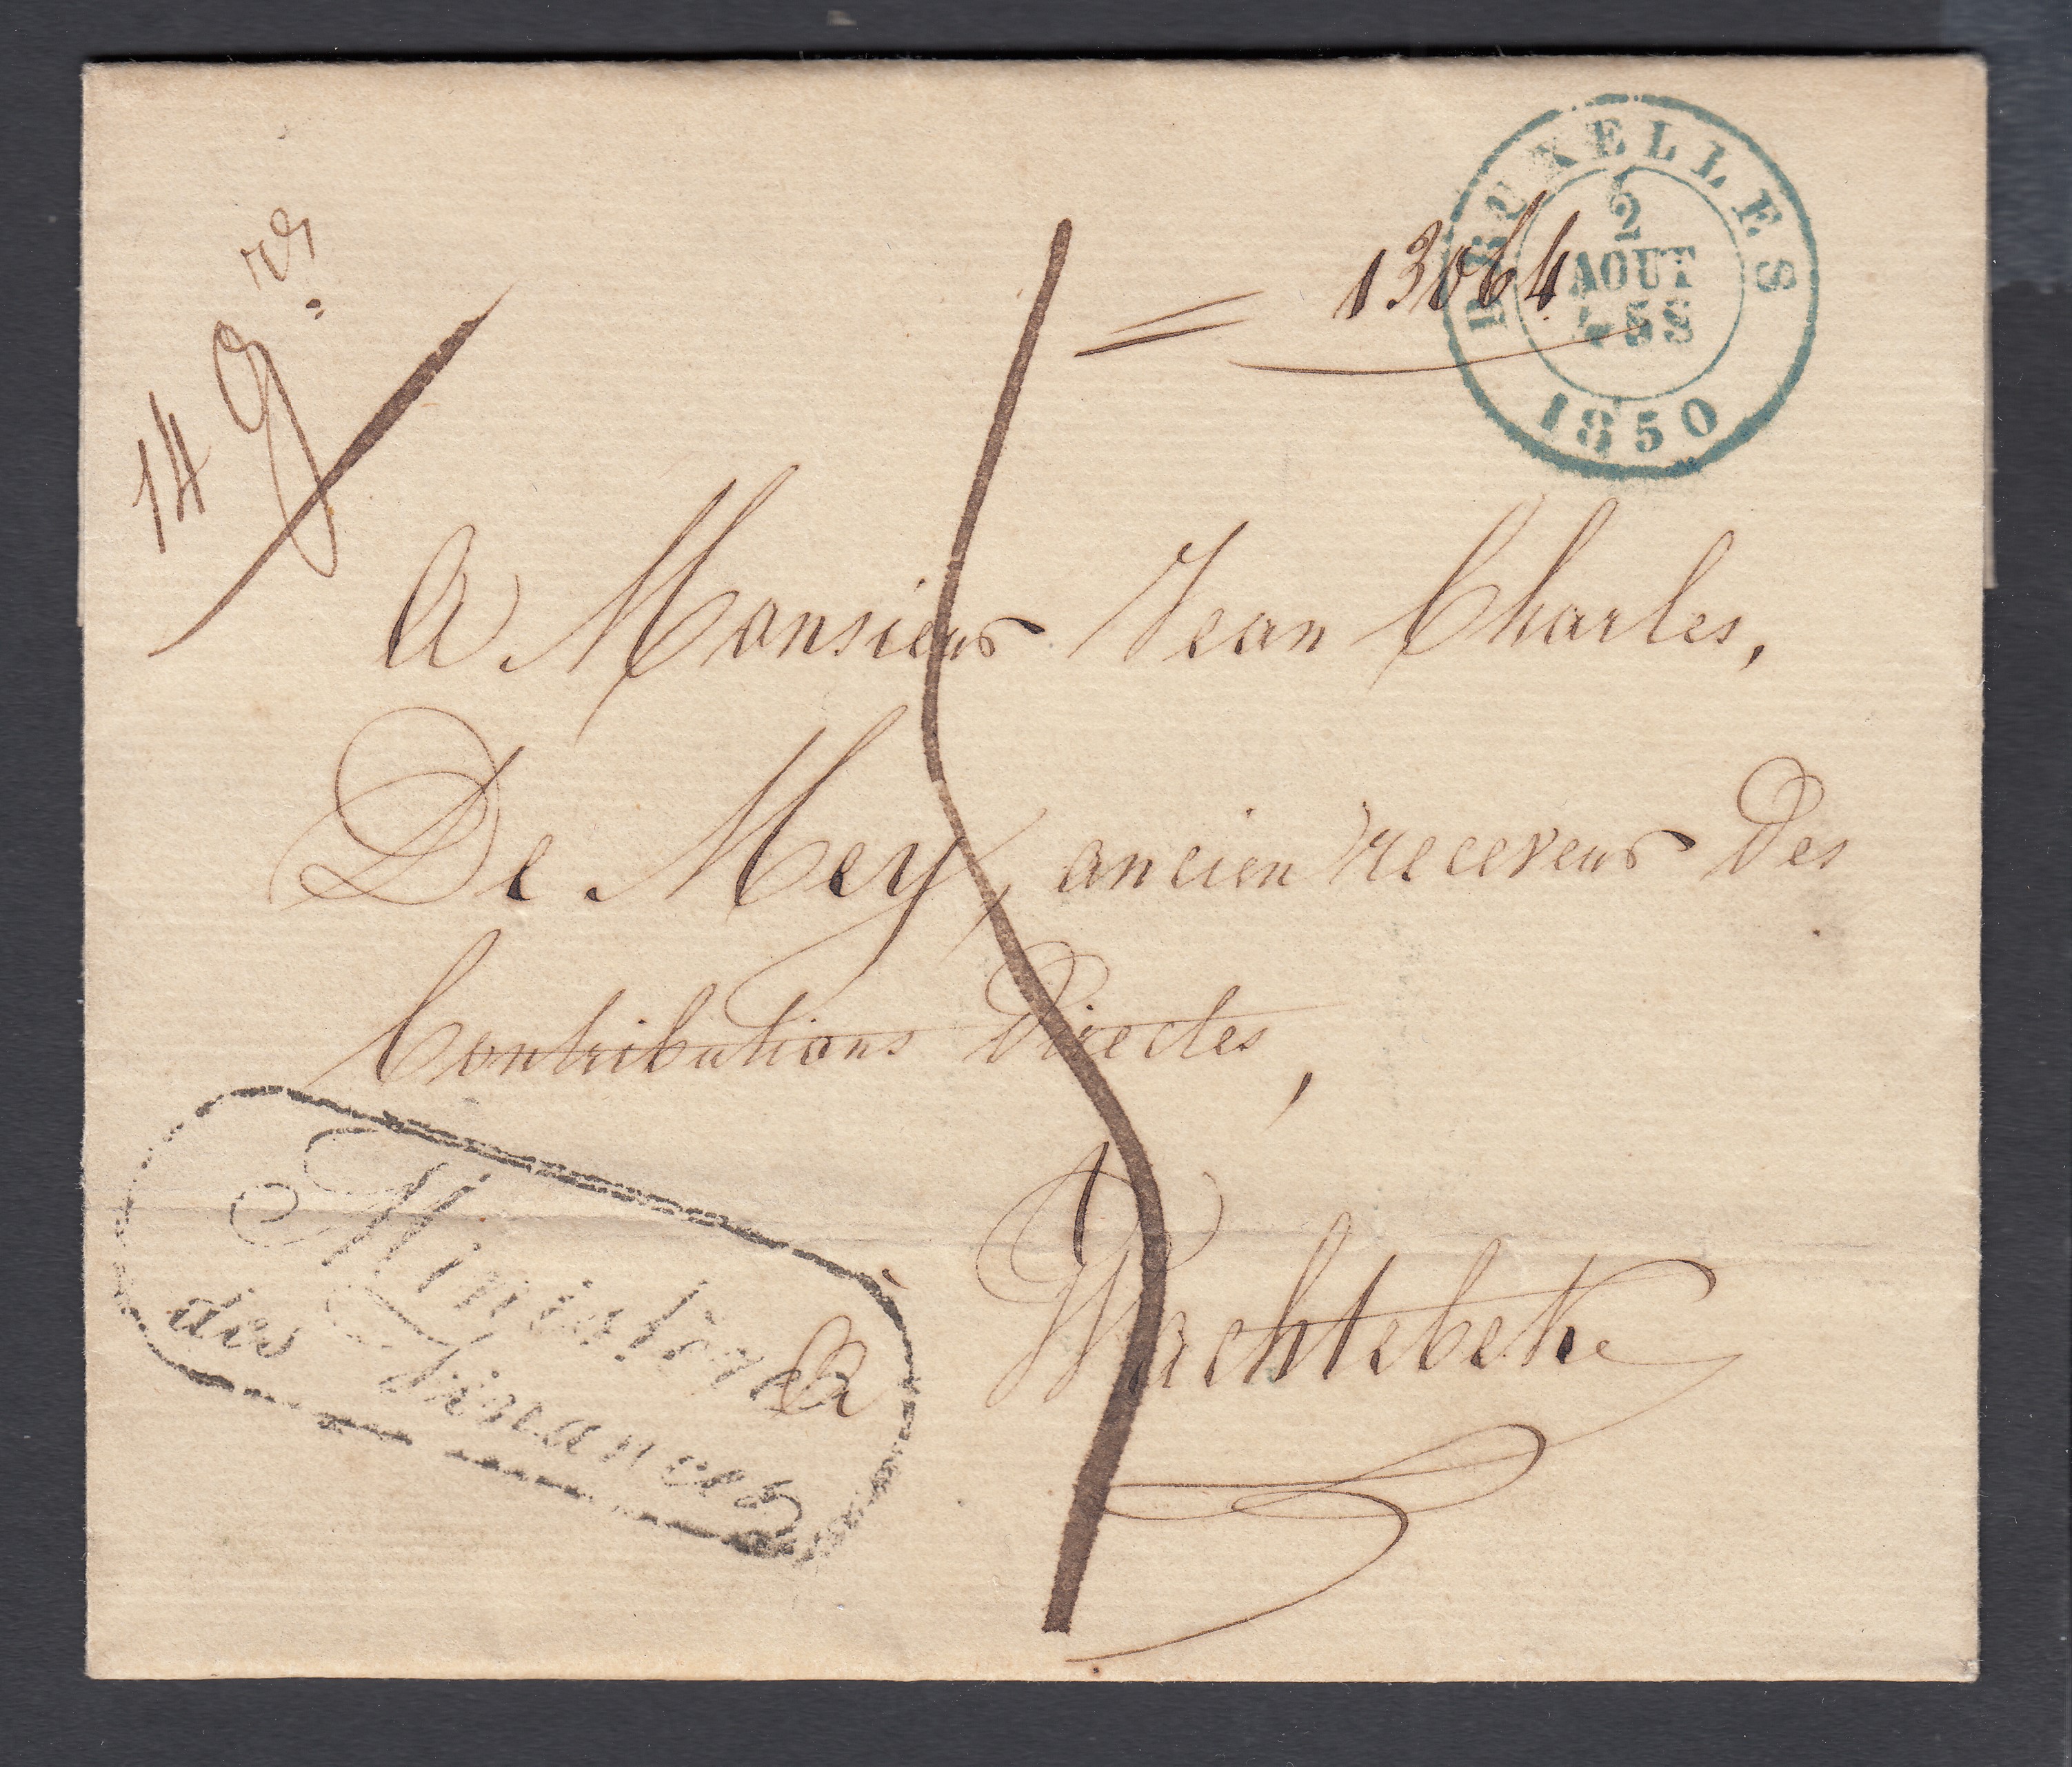 BRUXELLES
2
AOUT
4-5S
1850
13064
14 gr
5
A Monsieur Jean Charles,
De Mey, ancien receveur des
Contributions directes,
à Wachtebeke
Ministère
des Finances